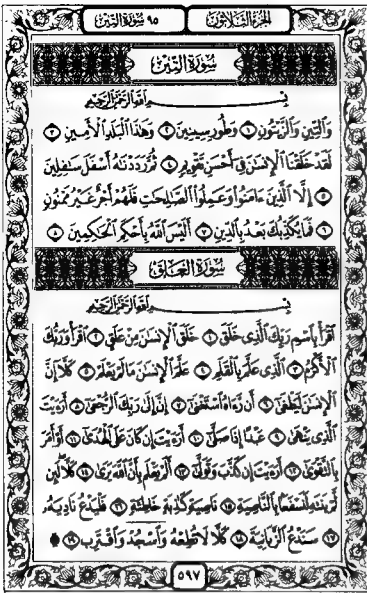 الجزء الثلاثون ٩٥ سورة التين
سورة التين
بسم الله الرحمن الرحيم
وَٱلتِّينِ وَٱلزَّيْتُونِ ١ وَطُورِ سِينِينَ ٢ وَهَٰذَا ٱلْبَلَدِ ٱلْأَمِينِ ٣
لَقَدْ خَلَقْنَا ٱلْإِنسَٰنَ فِىٓ أَحْسَنِ تَقْوِيمٍ ٤ ثُمَّ رَدَدْنَٰهُ أَسْفَلَ سَٰفِلِينَ
٥ إِلَّا ٱلَّذِينَ ءَامَنُوا۟ وَعَمِلُوا۟ ٱلصَّٰلِحَٰتِ فَلَهُمْ أَجْرٌ غَيْرُ مَمْنُونٍ
٦ فَمَا يُكَذِّبُكَ بَعْدُ بِٱلدِّينِ ٧ أَلَيْسَ ٱللَّهُ بِأَحْكَمِ ٱلْحَٰكِمِينَ ٨
سورة العلق
بسم الله الرحمن الرحيم
ٱقْرَأْ بِٱسْمِ رَبِّكَ ٱلَّذِى خَلَقَ ١ خَلَقَ ٱلْإِنسَٰنَ مِنْ عَلَقٍ ٢ ٱقْرَأْ وَرَبُّكَ
ٱلْأَكْرَمُ ٣ ٱلَّذِى عَلَّمَ بِٱلْقَلَمِ ٤ عَلَّمَ ٱلْإِنسَٰنَ مَا لَمْ يَعْلَمْ ٥ كَلَّآ إِنَّ
ٱلْإِنسَٰنَ لَيَطْغَىٰٓ ٦ أَن رَّءَاهُ ٱسْتَغْنَىٰٓ ٧ إِنَّ إِلَىٰ رَبِّكَ ٱلرُّجْعَىٰٓ ٨ أَرَءَيْتَ
ٱلَّذِى يَنْهَىٰ ٩ عَبْدًا إِذَا صَلَّىٰٓ ١٠ أَرَءَيْتَ إِن كَانَ عَلَى ٱلْهُدَىٰٓ ١١ أَوْ أَمَرَ
بِٱلتَّقْوَىٰٓ ١٢ أَرَءَيْتَ إِن كَذَّبَ وَتَوَلَّىٰٓ ١٣ أَلَمْ يَعْلَم بِأَنَّ ٱللَّهَ يَرَىٰ ١٤ كَلَّا لَئِن
لَّمْ يَنتَهِ لَنَسْفَعًۢا بِٱلنَّاصِيَةِ ١٥ نَاصِيَةٍ كَٰذِبَةٍ خَاطِئَةٍ ١٦ فَلْيَدْعُ نَادِيَهُۥ
١٧ سَنَدْعُ ٱلزَّبَانِيَةَ ١٨ كَلَّا لَا تُطِعْهُ وَٱسْجُدْ وَٱقْتَرِب ۩ ١٩
٥٩٧